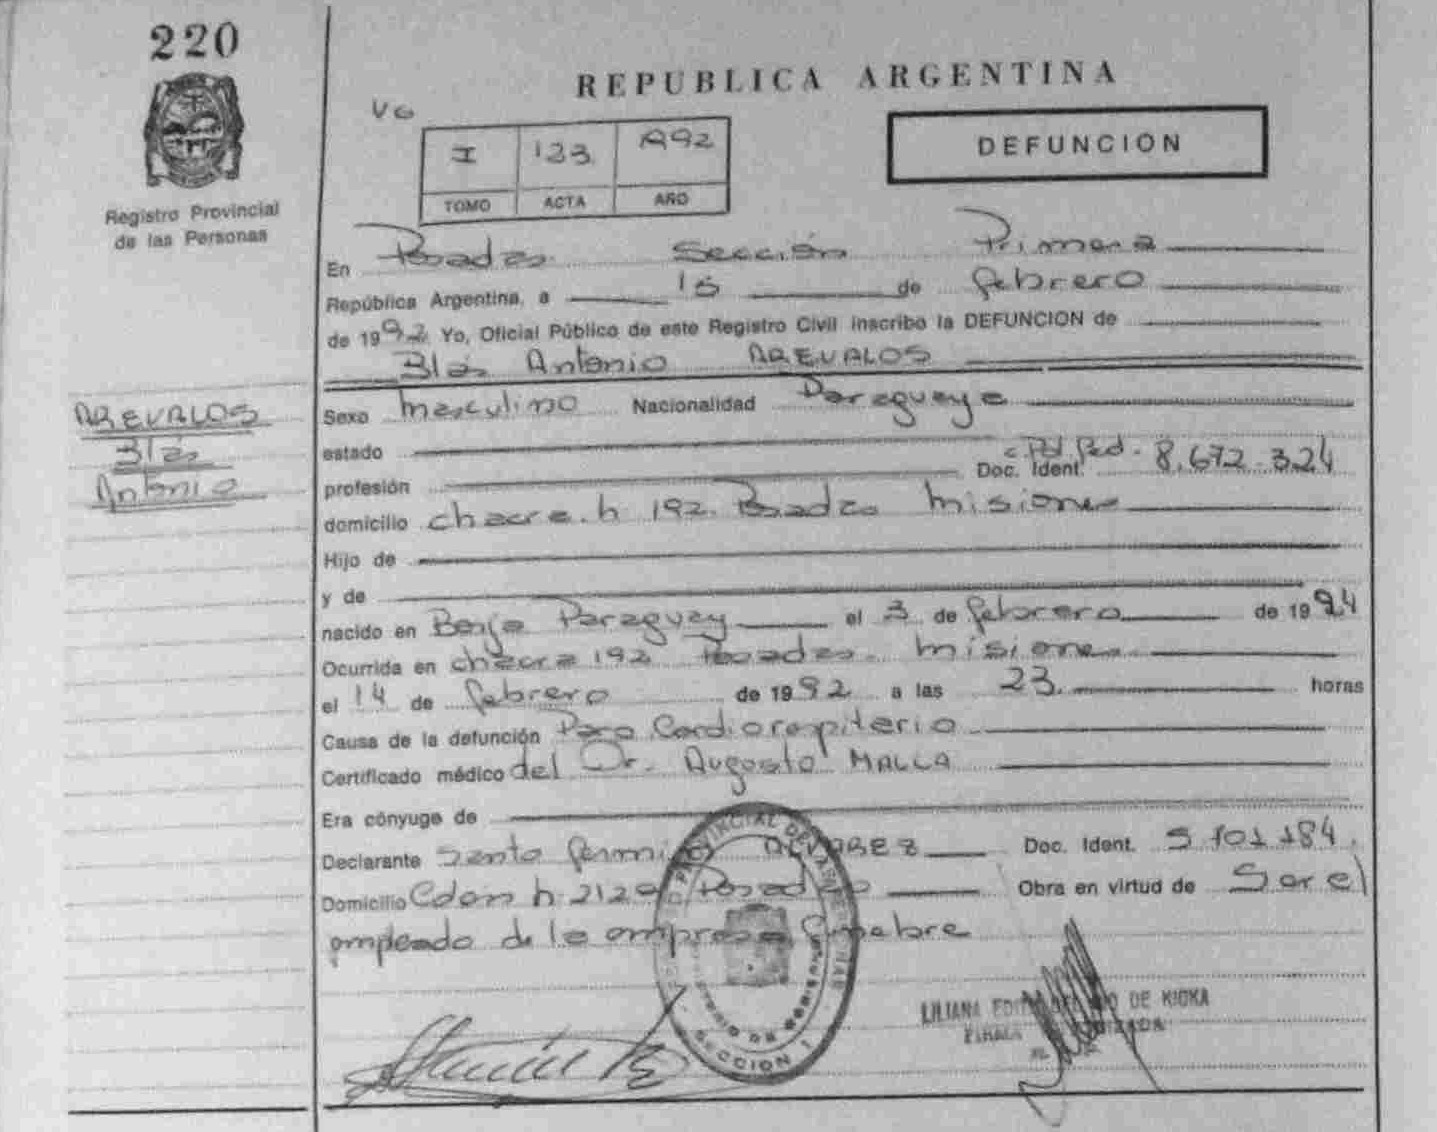 220
Registro Provincial
de las Personas
REPUBLICA ARGENTINA
VG
I 123 A92
TOMO ACTA AÑO
DEFUNCION
En Posadas Sección Primera
República Argentina, a 15 de febrero
de 1992 Yo, Oficial Público de este Registro Civil inscribo la DEFUNCION de
Blás Antonio AREVALOS
AREVALOS
Blás
Antonio
Sexo masculino Nacionalidad Paraguaya
estado
profesión Doc. Ident. c. Pol. Fed. 8.672.324
domicilio chacra. h 192. Posadas Misiones
Hijo de
y de
nacido en Borja Paraguay el 3 de febrero de 1924
Ocurrida en chacra 192 Posadas. Misiones
el 14 de febrero de 1992 a las 23. horas
Causa de la defunción Paro Cardiorespiterio
Certificado médico del Dr. Augosto MALLA
Era cónyuge de
Declarante Santo Fermin ALVAREZ Doc. Ident. 5 101 184.
Domicilio Colon h 2129 Posadas Obra en virtud de Ser el
empleado de la empresa funebre
SECCION 1
LILIANA EDIT DE KIOKA